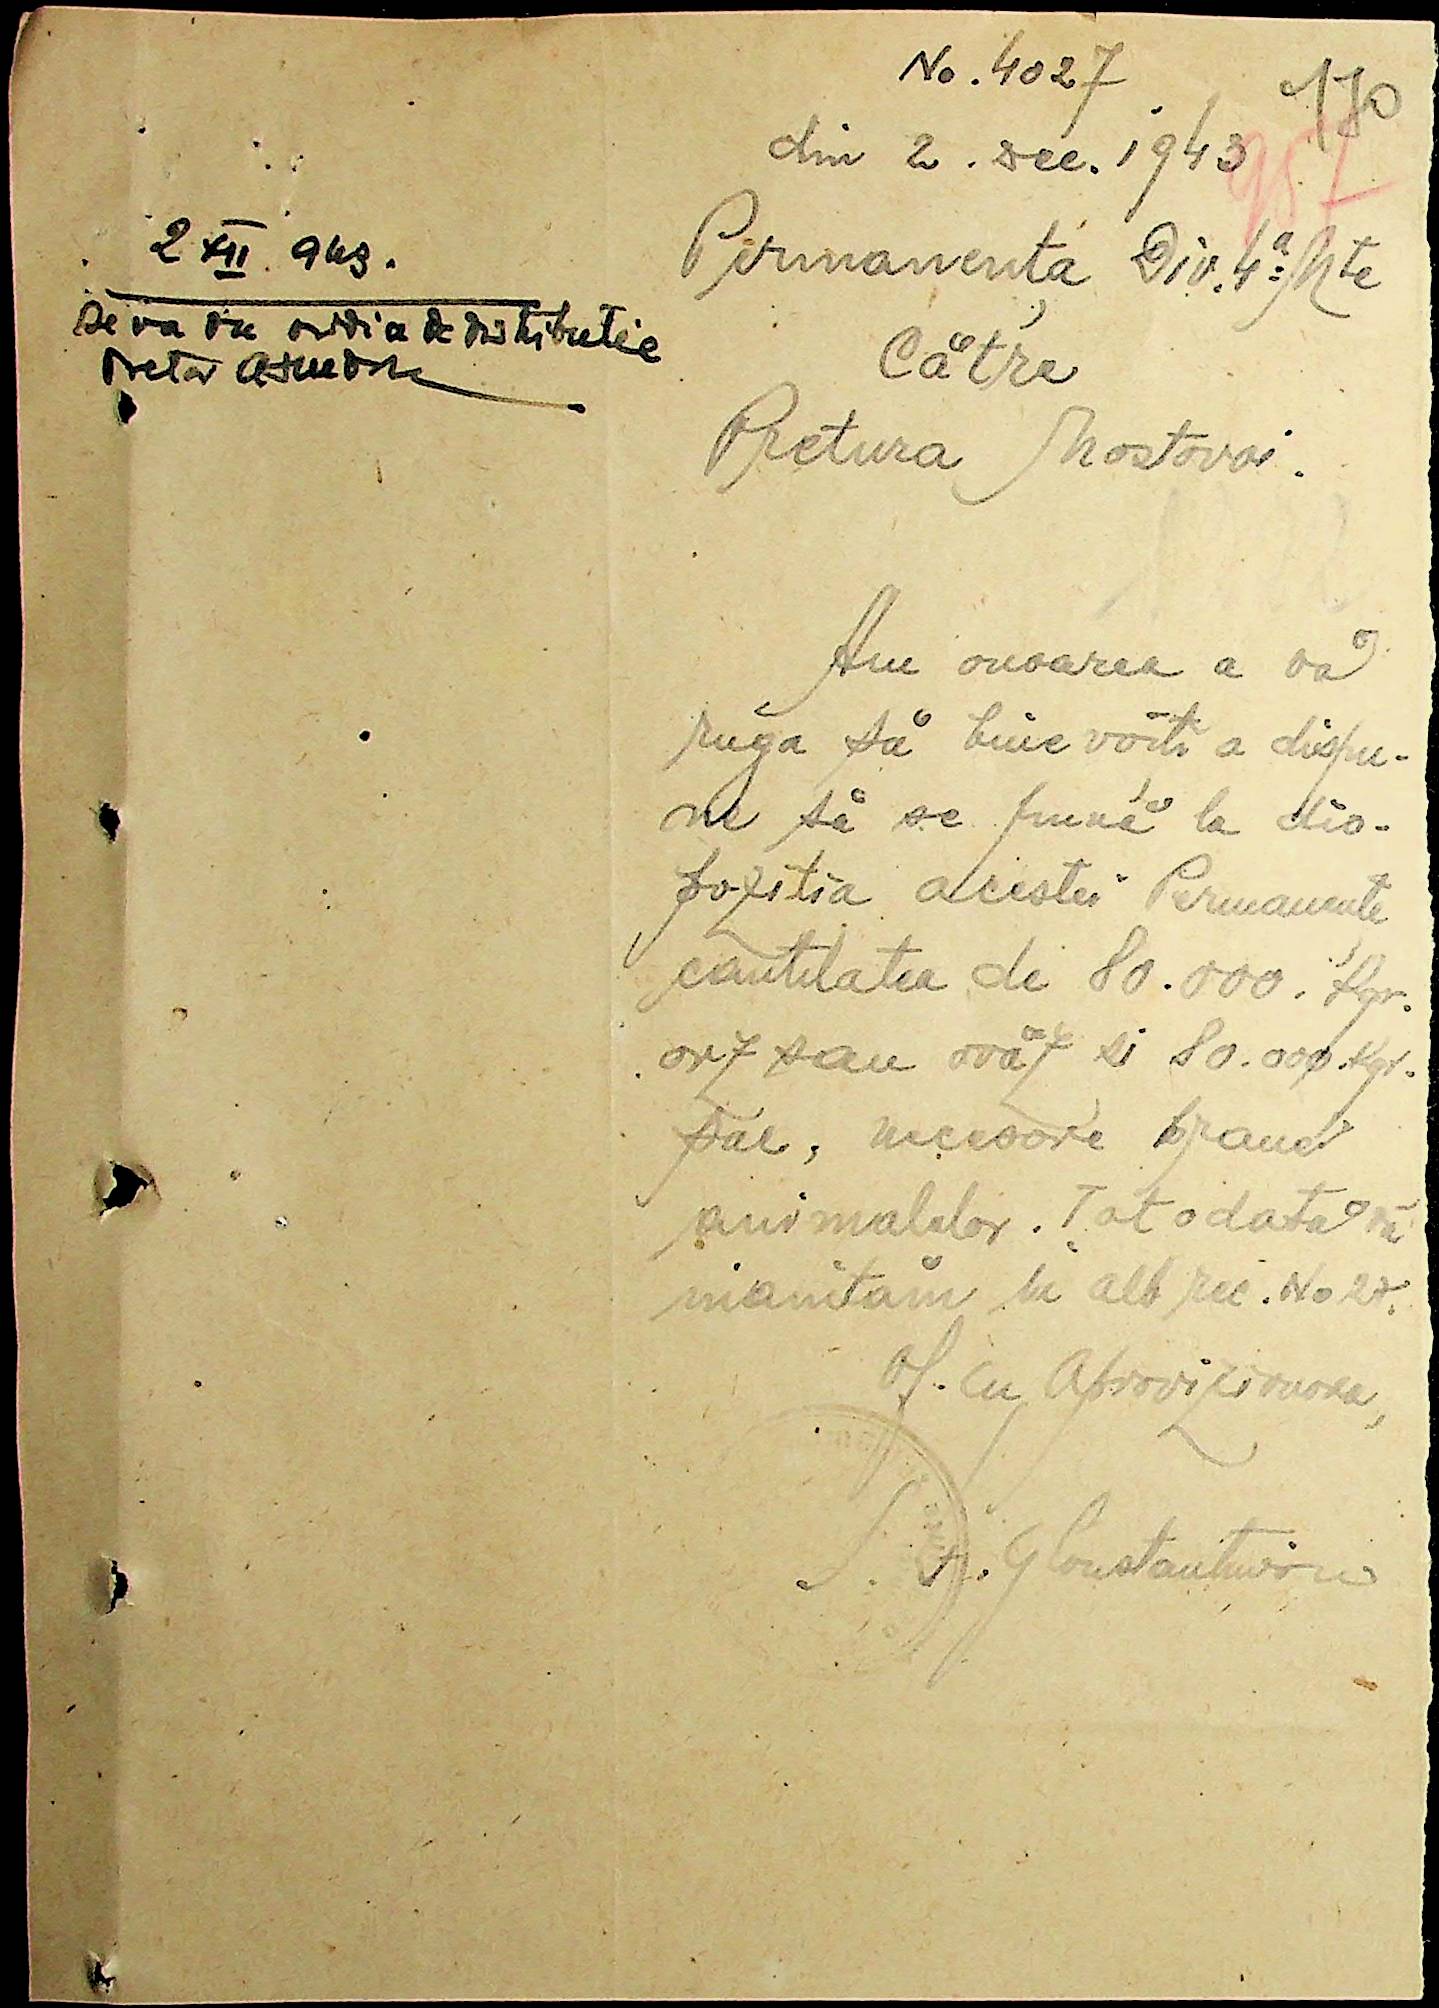 No. 4027
170
din 2. Dec. 1943
957
Permanenta Div. 4ª Mte
Către
Pretura Mostovoi.
2 XII 943.
se va da ordin de distributie
Pretor
Am onoarea a vă
ruga să bine voiți a dispu-
ne să se pună la dis-
poziția acestei Permanențe
cantitatea de 80.000. Kgr.
orz sau ovăz si 80.000. Kgr.
pae, necesare hranei
animalelor. Tot odată vă
inaintăm in alb rec. No
Of. cu Aprovizionarea,
Constantinoiu